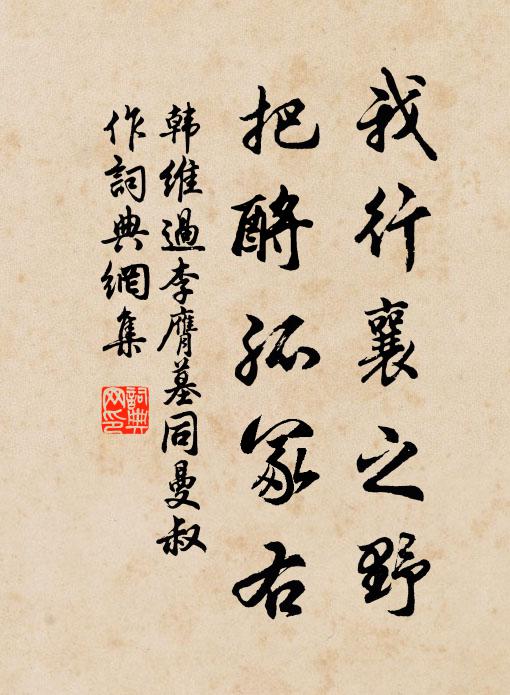 我行襄之野
把酹孤冢右
韩維過李膺墓同曼叔
作詞典網集
詞典
网印